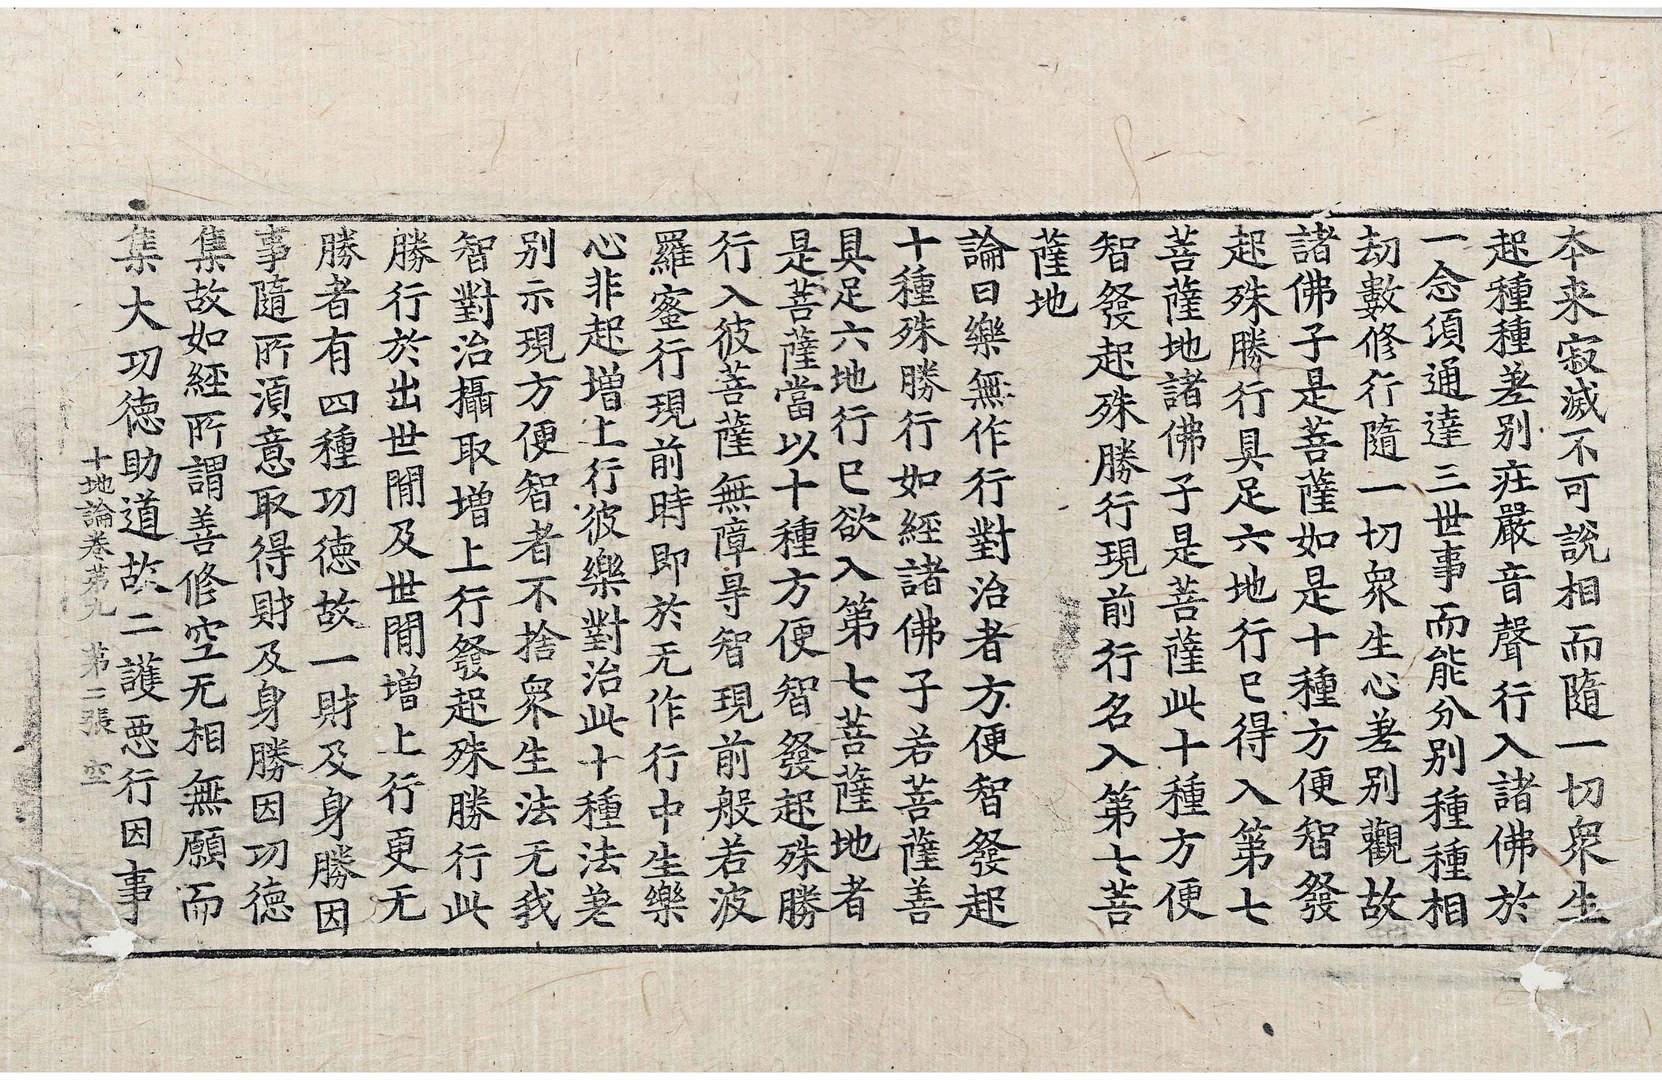 本来寂滅不可說相而隨一切衆生
起種種差别莊嚴音聲行入諸佛於
一念湏通達三世事而能分别種種相
劫數修行隨一切衆生心差别觀故
諸佛子是菩薩如是十種方便智發
起殊勝行具足六地行已得入第七
菩薩地諸佛子是菩薩此十種方便
智發起殊勝行現前行名入第七菩
薩地
論曰樂無作行對治者方便智發起
十種殊勝行如經諸佛子若菩薩善
具足六地行已欲入第七菩薩地者
是菩薩當以十種方便智發起殊勝
行入彼菩薩無障㝵智現前般若波
羅蜜行現前時即於无作行中生樂
心非起增上行彼樂對治此十種法差
别示現方便智者不捨衆生法无我
智對治攝取增上行發起殊勝行此
勝行於出世間及世間增上行更无
勝者有四種功德故一財及身勝因
事隨所湏意取得財及身勝因功德
集故如經所謂善修空无相無願而
集大功德助道故二護惡行因事
十地論卷苐九 苐二張 空